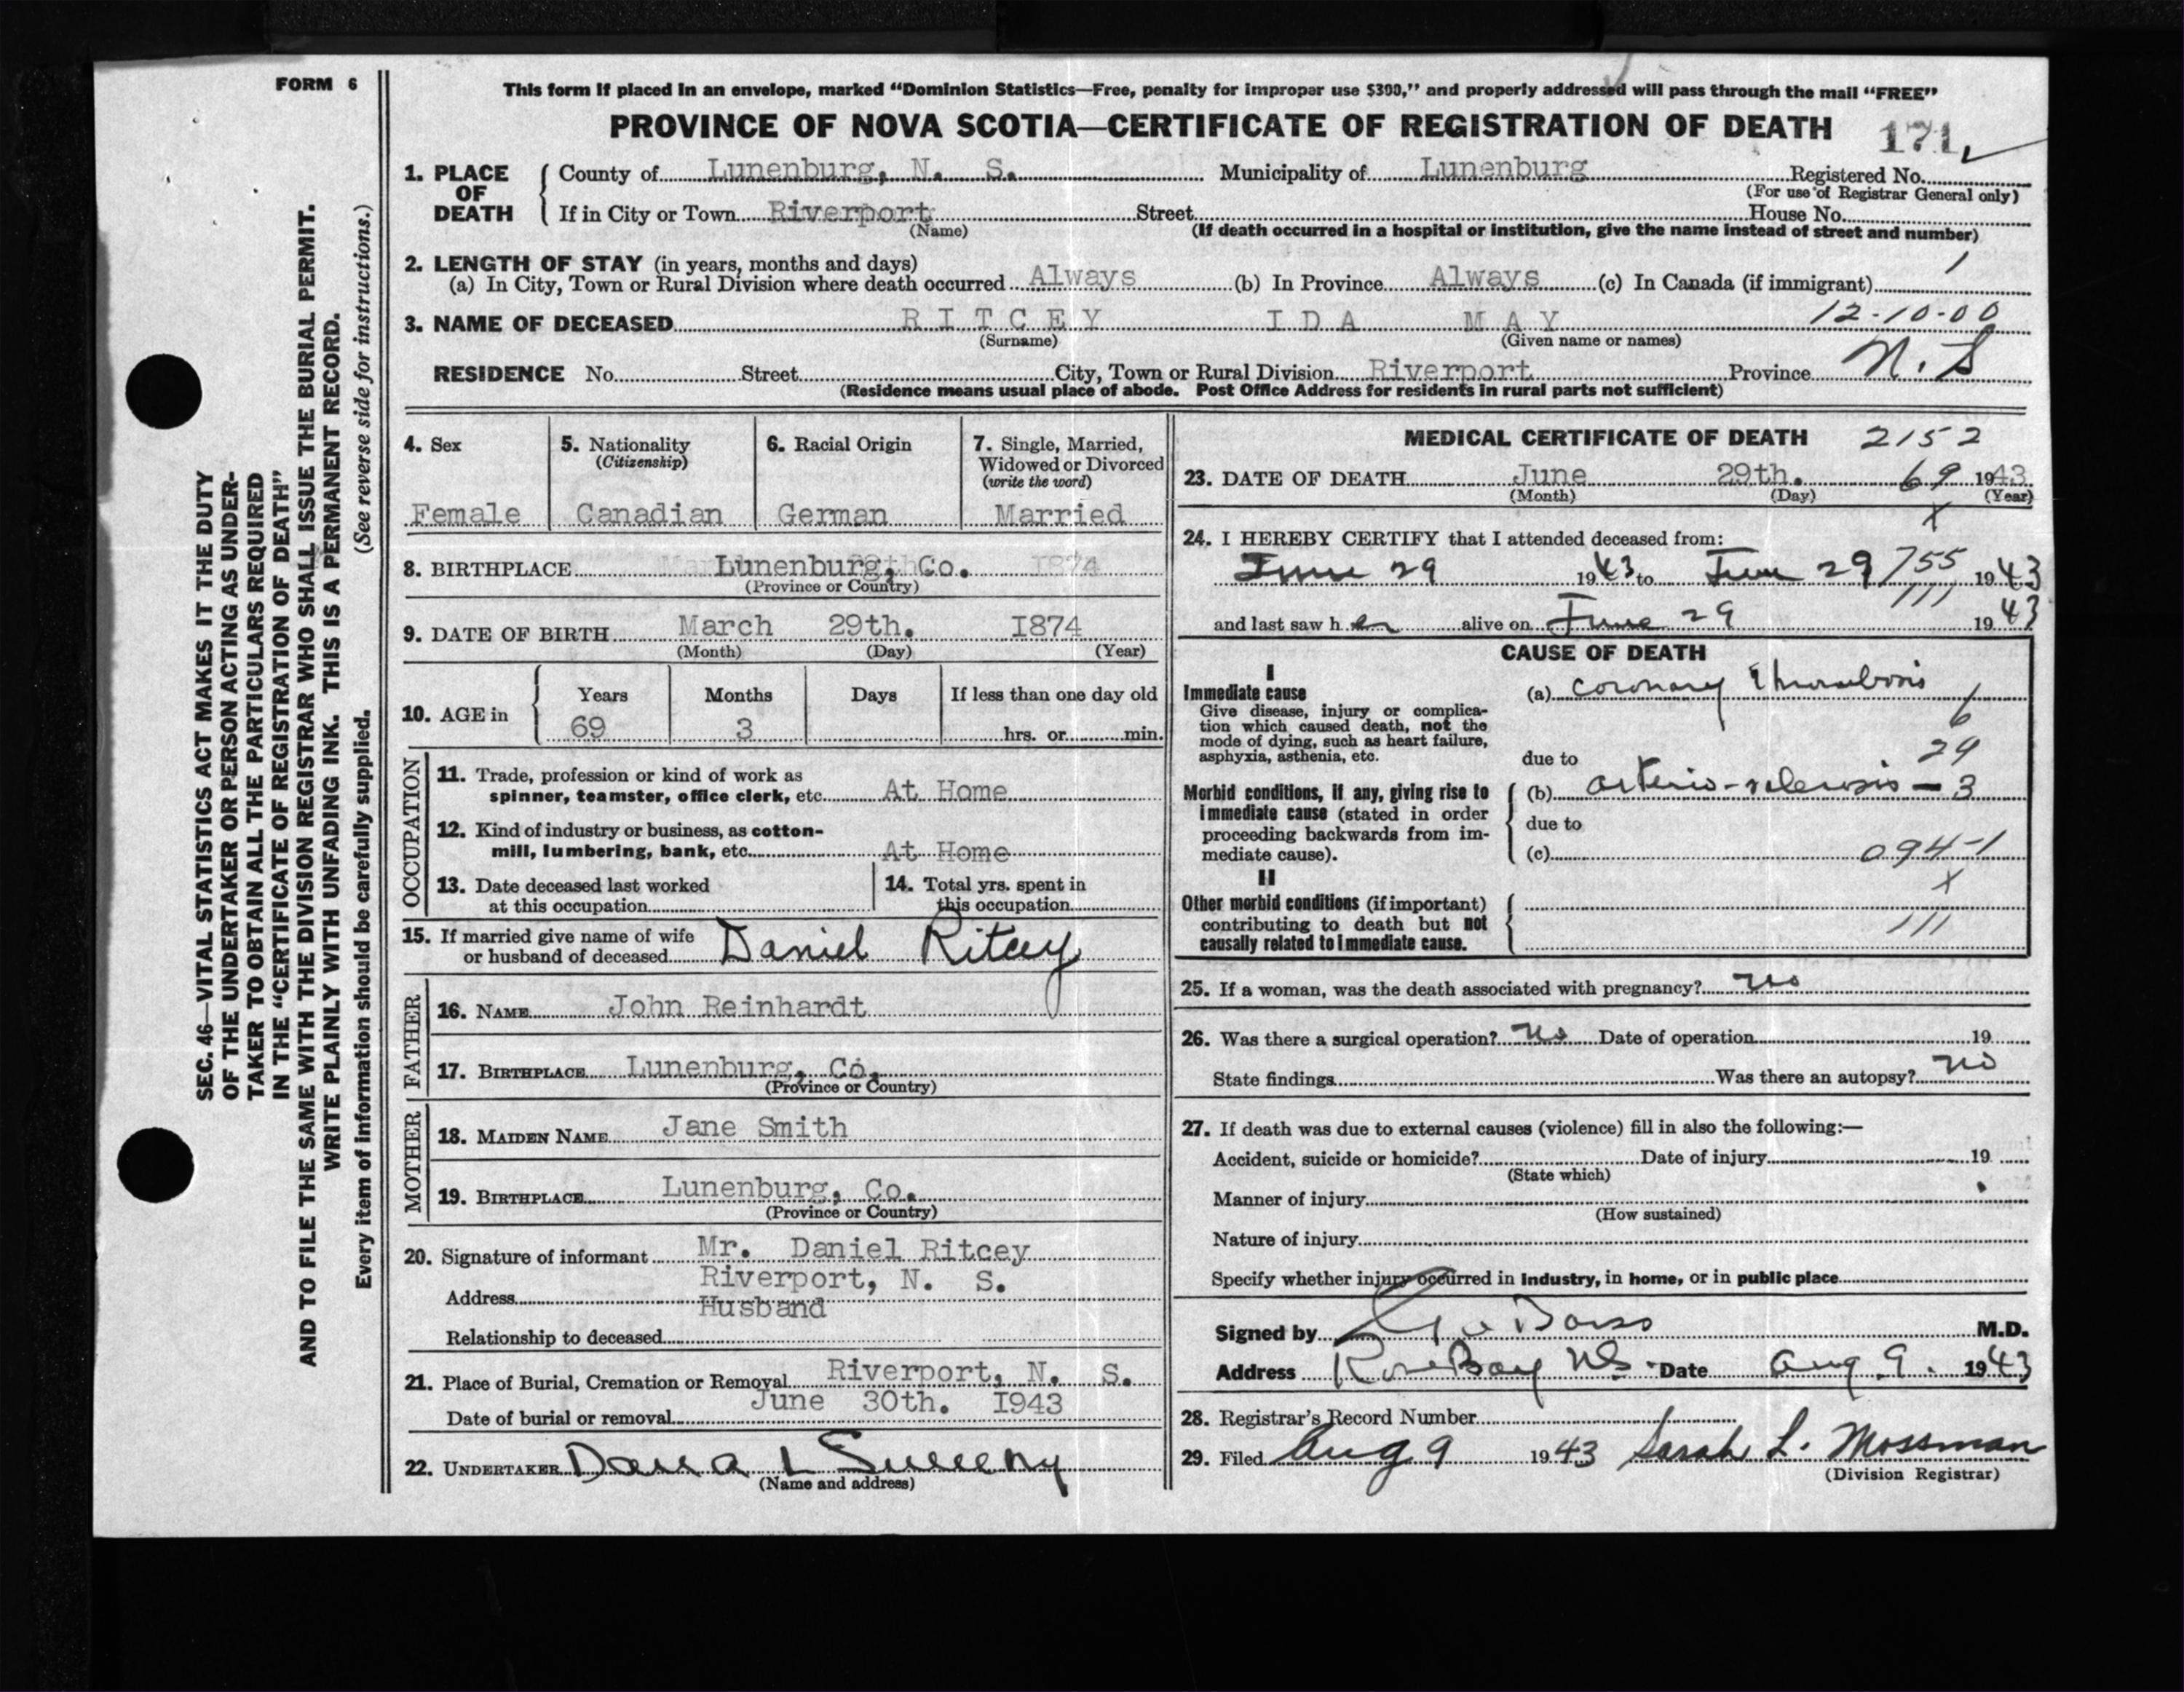 FORM 6
This form if placed in an envelope, marked “Dominion Statistics—Free, penalty for improper use $300,” and properly addressed will pass through the mail “FREE”
PROVINCE OF NOVA SCOTIA—CERTIFICATE OF REGISTRATION OF DEATH 171
1. PLACE OF DEATH County of Lunenburg, N. S. Municipality of Lunenburg Registered No.
(For use of Registrar General only)
If in City or Town Riverport Street House No.
(Name) (If death occurred in a hospital or institution, give the name instead of street and number)
2. LENGTH OF STAY (in years, months and days) 1
(a) In City, Town or Rural Division where death occurred Always (b) In Province Always (c) In Canada (if immigrant)
3. NAME OF DECEASED RITCEY IDA MAY 12-10-00
(Surname) (Given name or names)
RESIDENCE No. Street City, Town or Rural Division Riverport Province N.S
(Residence means usual place of abode. Post Office Address for residents in rural parts not sufficient)
4. Sex
Female
5. Nationality
(Citizenship)
Canadian
6. Racial Origin
German
7. Single, Married,
Widowed or Divorced
(write the word)
Married
8. BIRTHPLACE Lunenburg, Co.
(Province or Country)
9. DATE OF BIRTH March 29th. 1874
(Month) (Day) (Year)
10. AGE in Years Months Days If less than one day old
69 3 hrs. or min.
OCCUPATION
11. Trade, profession or kind of work as
spinner, teamster, office clerk, etc. At Home
12. Kind of industry or business, as cotton-
mill, lumbering, bank, etc. At Home
13. Date deceased last worked
at this occupation
14. Total yrs. spent in
this occupation
15. If married give name of wife
or husband of deceased Daniel Ritcey
FATHER
16. NAME John Reinhardt
17. BIRTHPLACE Lunenburg, Co.
(Province or Country)
MOTHER
18. MAIDEN NAME Jane Smith
19. BIRTHPLACE Lunenburg, Co.
(Province or Country)
20. Signature of informant Mr. Daniel Ritcey
Riverport, N. S.
Address
Husband
Relationship to deceased
21. Place of Burial, Cremation or Removal Riverport, N. S.
Date of burial or removal June 30th. 1943
22. UNDERTAKER Dana L Sweeny
(Name and address)
MEDICAL CERTIFICATE OF DEATH 2152
23. DATE OF DEATH June 29th. 69 1943
(Month) (Day) (Year)
x
24. I HEREBY CERTIFY that I attended deceased from:
June 29 1943 to June 29 755 1943
111
and last saw her alive on June 29 1943
CAUSE OF DEATH
I
Immediate cause (a) coronary thrombosis
Give disease, injury or complica-
tion which caused death, not the
mode of dying, such as heart failure,
asphyxia, asthenia, etc.
6
29
due to
Morbid conditions, if any, giving rise to
immediate cause (stated in order
proceeding backwards from im-
mediate cause).
(b) arterio-sclerosis - 3
due to
(c) 094-1
II
x
Other morbid conditions (if important)
contributing to death but not
causally related to immediate cause.
111
25. If a woman, was the death associated with pregnancy? no
26. Was there a surgical operation? no Date of operation 19
State findings Was there an autopsy? no
27. If death was due to external causes (violence) fill in also the following:—
Accident, suicide or homicide? Date of injury 19
(State which)
Manner of injury
(How sustained)
Nature of injury
Specify whether injury occurred in industry, in home, or in public place
Signed by M.D.
Address Rose Bay NS. Date Aug 9. 1943
28. Registrar's Record Number
29. Filed Aug 9 1943 Sarah L. Mossman
(Division Registrar)
SEC. 46—VITAL STATISTICS ACT MAKES IT THE DUTY
OF THE UNDERTAKER OR PERSON ACTING AS UNDER-
TAKER TO OBTAIN ALL THE PARTICULARS REQUIRED
IN THE “CERTIFICATE OF REGISTRATION OF DEATH”
AND TO FILE THE SAME WITH THE DIVISION REGISTRAR WHO SHALL ISSUE THE BURIAL PERMIT.
WRITE PLAINLY WITH UNFADING INK. THIS IS A PERMANENT RECORD.
Every item of information should be carefully supplied. (See reverse side for instructions.)